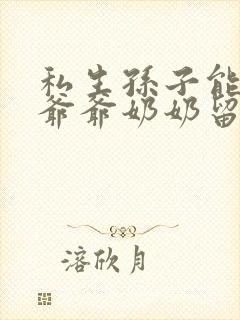 私生孫子能
爺爺奶奶留
溶欣月